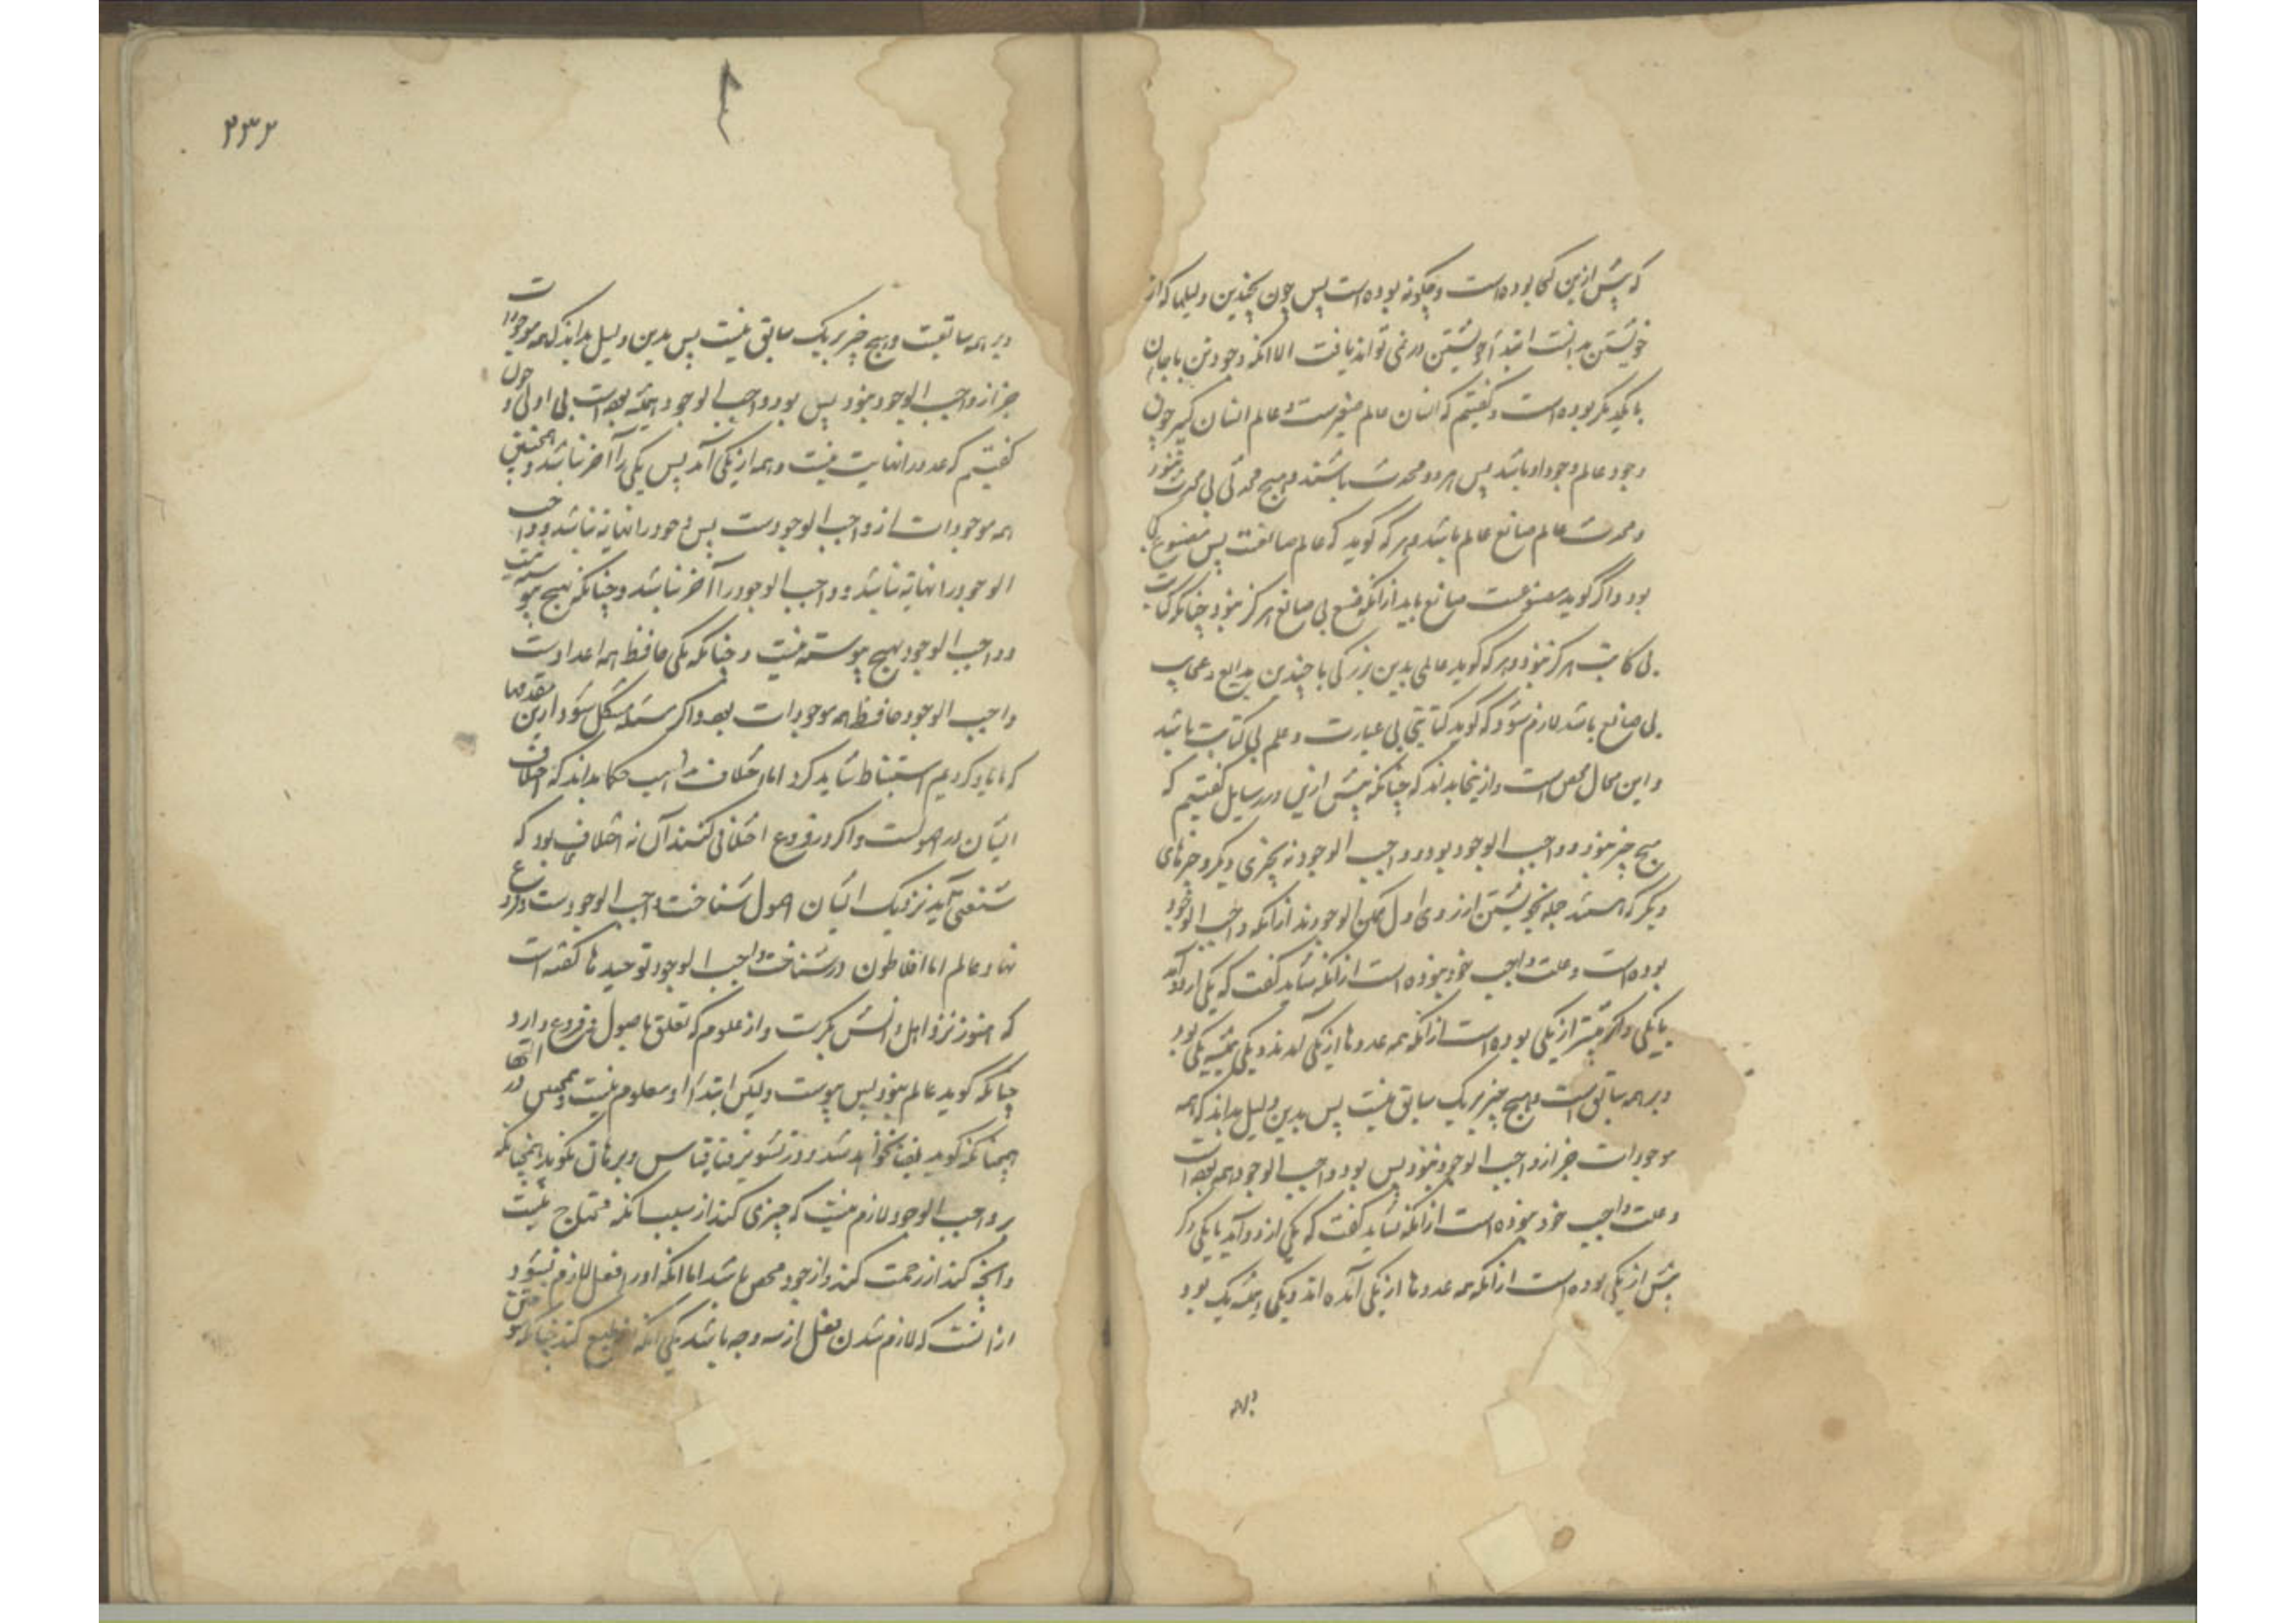 که پیش ازین کجا بوده است و چگونه بوده است پس چون بچندین دلیلها که از
خویشتن بدانست ابتدآ خویشتن در نمی تواند یافت الا انکه وجود تن با جان
با یکدیکر بوده است و کفتیم که انسان عالم صغیرست و عالم انسان کبیر چون
وجود عالم وجود او باشد پس هر دو محدث باشند و هیچ محدثی بی محدث نبود
و محدث عالم صانع عالم باشد و هر که کوید که عالم صانعست پس مصنوع کجا
بود و اگر کوید مصنوعست صانع باید از انکه صنع بی صانع هرکز نبود چنانکه کتابت
بی کاتب هرکز نبود و هر که کوید عالمی بدین بزرکی با چندین بدایع و عجایب
بی صانع باشد لازم شود که کوید کتابتی بی عبارت و علم بی کتابت باشد
و این محال محض است و ازینجا بداند که چنانکه پیش ازین در رسایل کفتیم که
هیچ چیز نبود و واجب الوجود بود و واجب الوجود نه بچیزی دیکر و چیزهای
دیکر که هستند جمله بخویشتن از روی اول ممکن الوجودند از انکه واجب الوجود
بوده است و علت واجب خود نبوده است از انکه نشاید کفت که یکی از دو آید
یا یکی دیکر پیشتر از یکی بوده است از انکه همه عددها از یکی آمدند و یکی همیشه یکی بود
و بر همه سابق است و هیچ چیز بر یک سابق نیست پس بدین دلیل بداند که همه
موجودات جز از واجب الوجود نبود پس بود و واجب الوجود همه بوده است
و علت واجب خود نبوده است از انکه نشاید کفت که یکی از دو آید یا یکی دیکر
پیش از یکی بوده است از انکه همه عددها از یکی آمده اند و یکی همیشه یک بود
و بر همه
۲۳۲
و بر همه سابقست و هیچ چیز بر یک سابق نیست پس بدین دلیل بداند که همه موجودات
جز از واجب الوجود نبود پس بود و واجب الوجود همیشه بوده است بی اولی و
کفتیم که عدد را نهایت نیست و همه از یکی آمد پس یکی را آخر نباشد و همچنین
همه موجودات از واجب الوجودست پس وجود را نهایة نباشد و واجب
الوجود را نهایة نباشد و واجب الوجود را آخر نباشد و چنانکه یکی بهیچ پیوسته نیست
و واجب الوجود بهیچ پیوسته نیست و چنانکه یکی حافظ همه اعدادست
واجب الوجود حافظ همه موجودات بود و اکر مسئله مشکل شود ازین مقدمها
که ما یاد کردیم استنباط شاید کرد اما اختلاف مذاهب حکما بداند که اختلاف
ایشان در اصولست و اکر در فروع اختلافی کنند آن نه اختلاف بود که
نزدیک ایشان اصول شناخت واجب الوجودست و فروع
نهاد عالم اما افلاطون در شناخت واجب الوجود توحید ها کفته است
که هنوز نزد اهل دانش بکرست و از علوم که تعلق باصول و فروع دارد
چنانکه کوید عالم نبود پس پیوست ولیکن ابتدآ او معلوم نیست و همچنین در انتها
همچنانکه کوید فنا نخواهد شد و قیاس و برهان نکوید همچنانکه
واجب الوجود لازم نیست که چیزی کند از سبب انکه محتاج نیست
وانچه کند از رحمت کند و از جود محض باشد اما انکه او را فعل لازم نشود
از انست که لازم شدن فعل از سه وجه باشد یکی انکه از طبع کند چنانکه سوختن